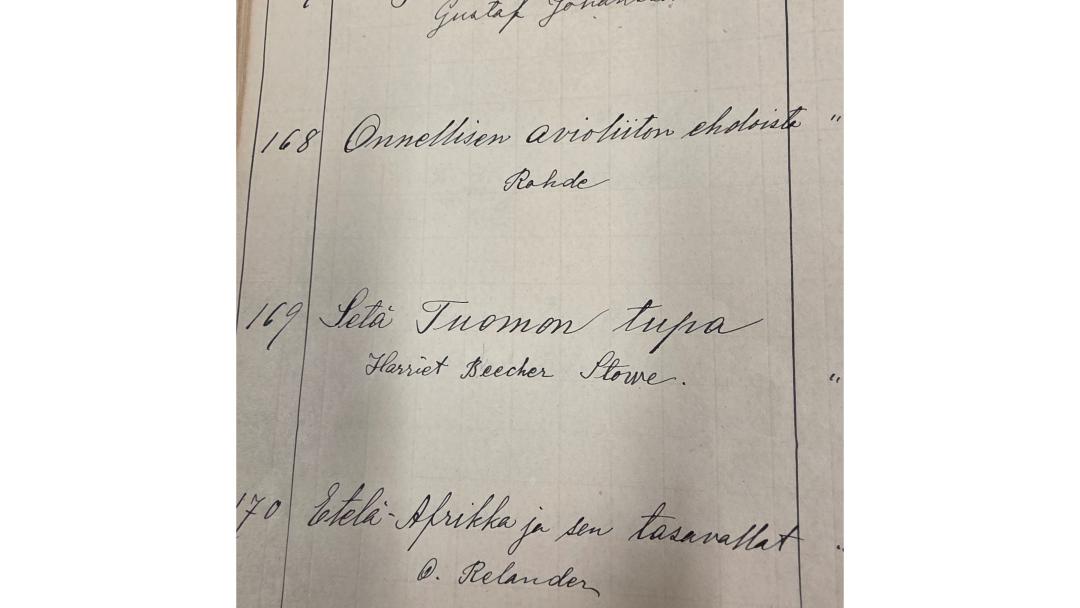 Gustaf
168 Onnellisen avioliiton ehdoista "
Rohde
169 Setä Tuomon tupa
Harriet Beecher Stowe. "
170 Etelä-Afrikka ja sen tasavallat "
O. Relander